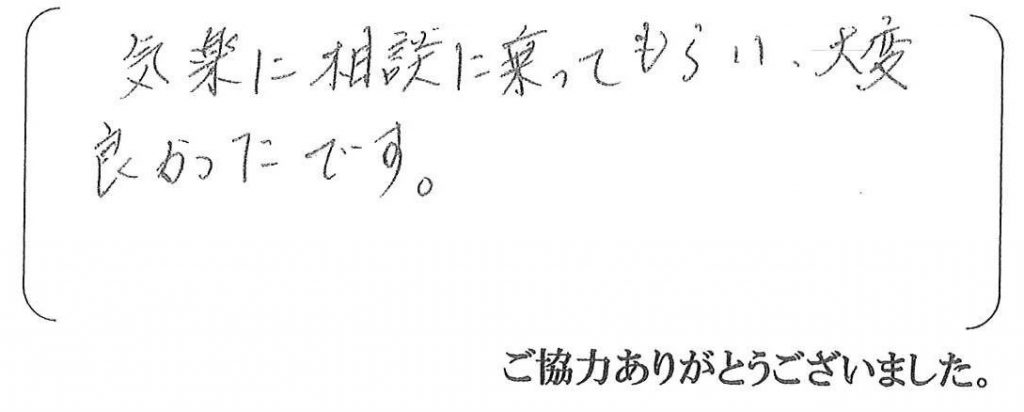 気楽に相談に乗ってもらい、大変
良かったです。
ご協力ありがとうございました。